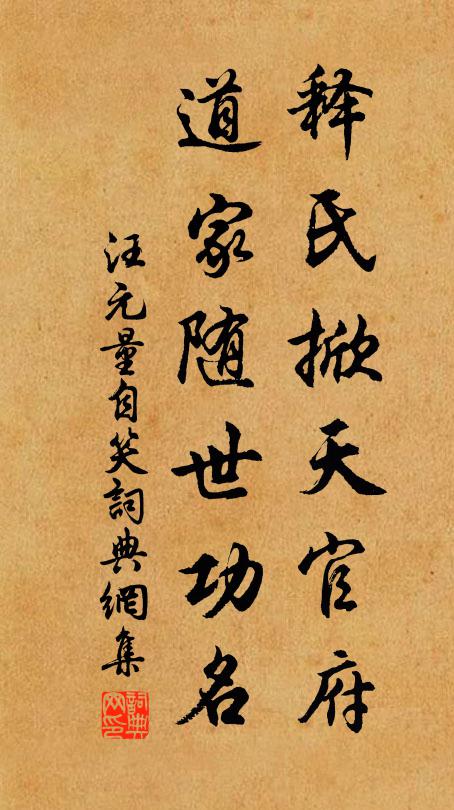 释氏掀天官府
道家随世功名
汪元量自笑詞典網集
詞典网印